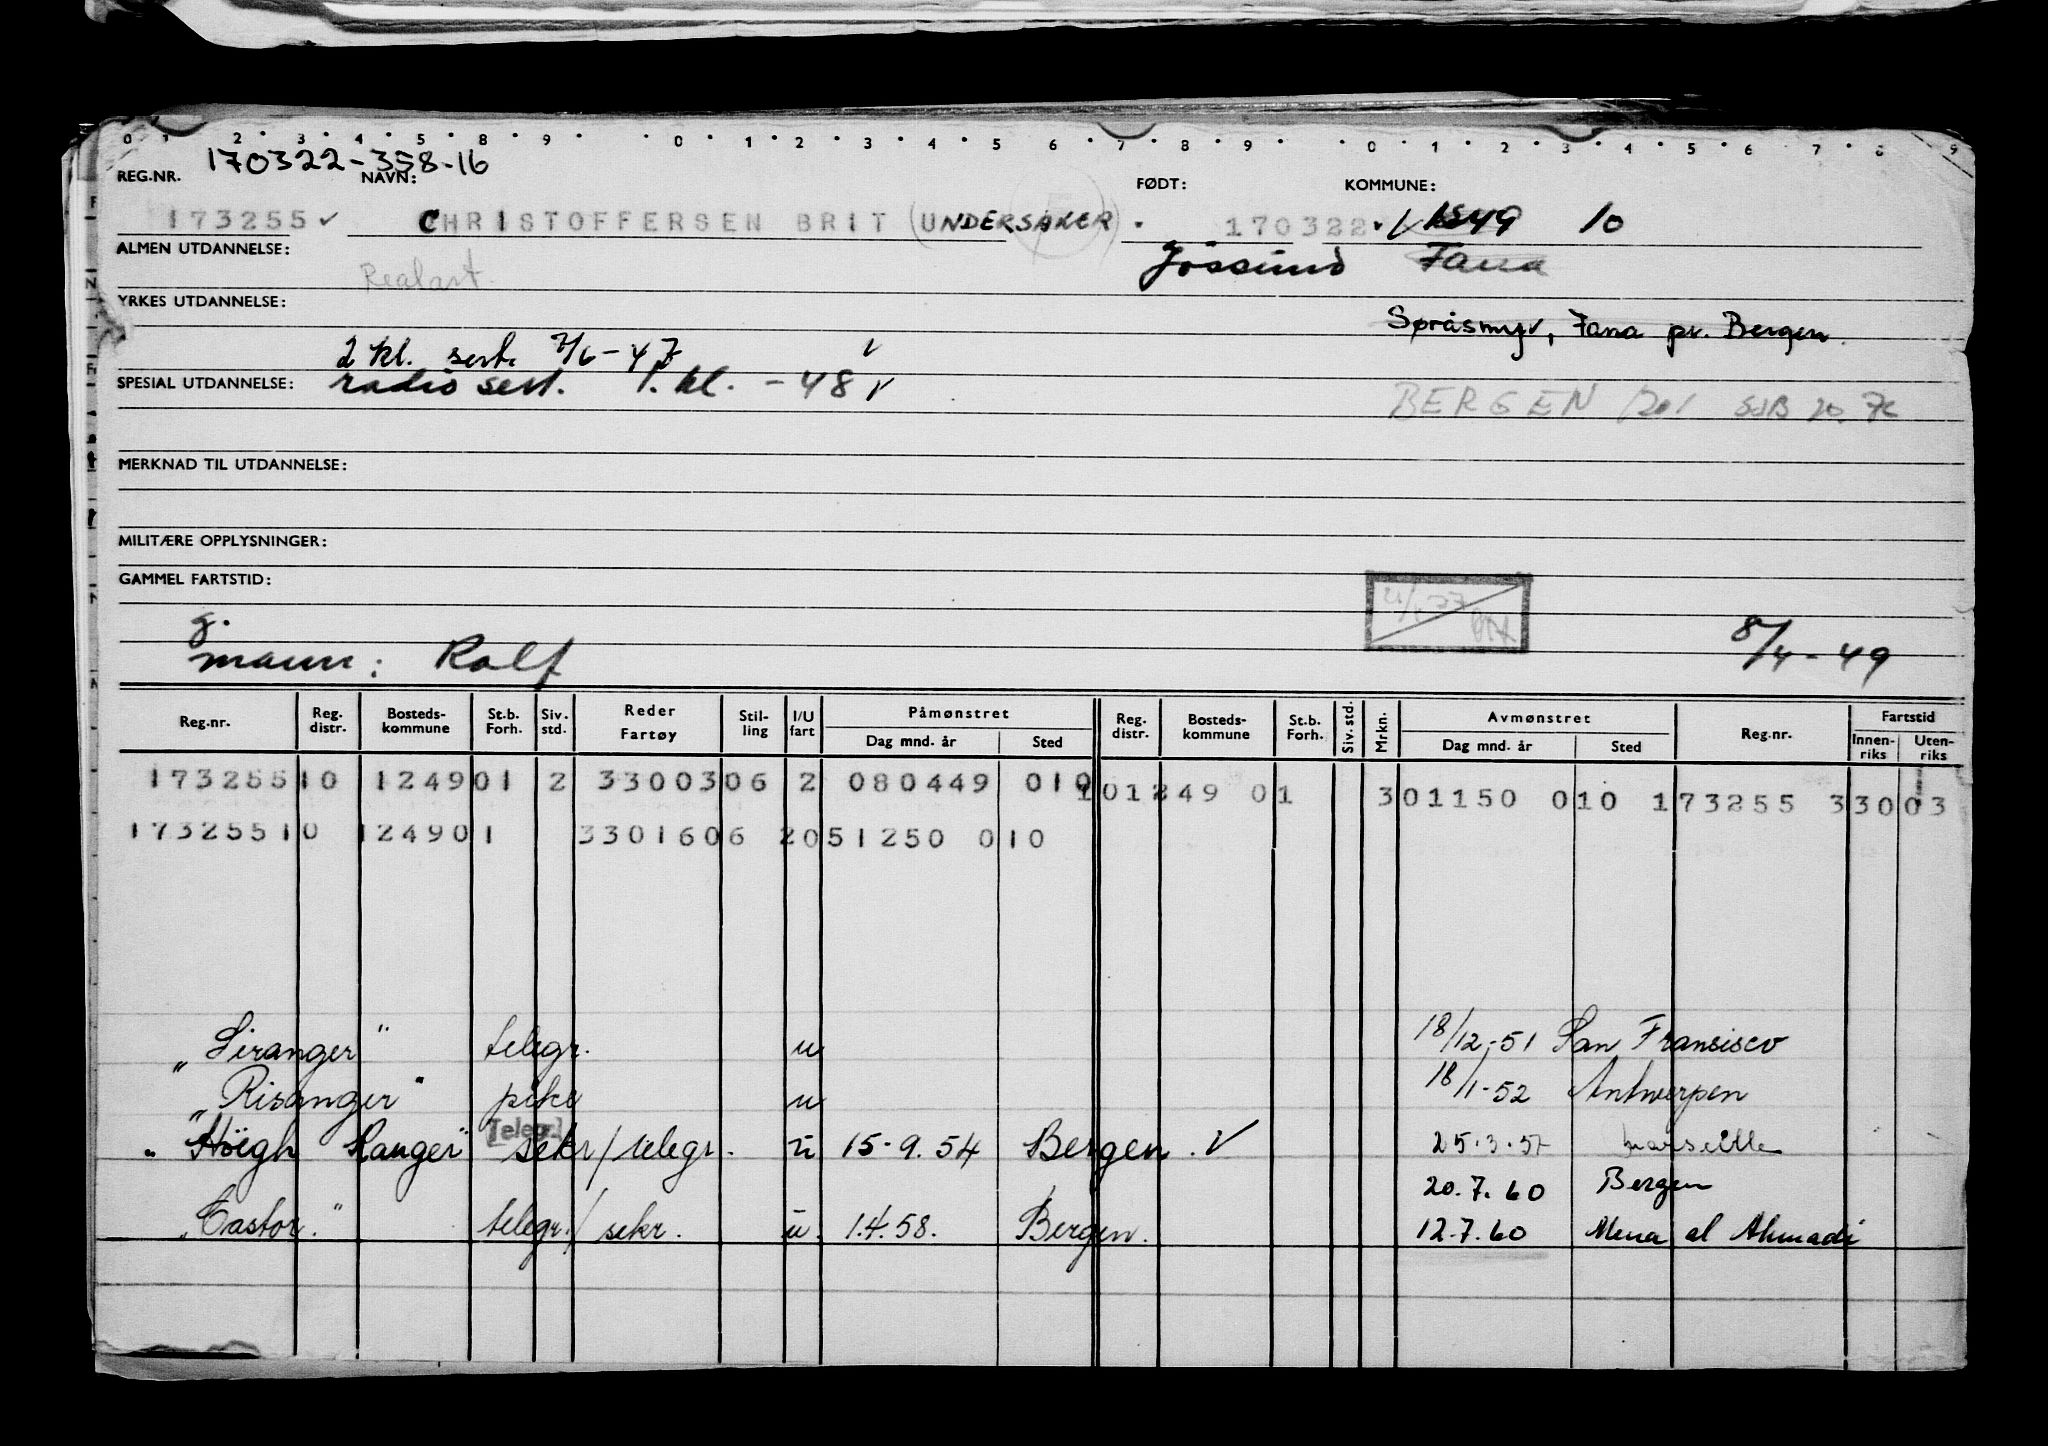 0 1 2 3 4 5 8 9 0 1 2 3 4 5 6 7 8 9 0 1 2 3 4 5 6 7 8 9
170322-358-16
REG.NR. NAVN: FØDT: KOMMUNE:
173255 ✓ CHRISTOFFERSEN BRIT (UNDERSAKER) 170322 1249 10
ALMEN UTDANNELSE: Jøssund Fana
Realart.
YRKES UTDANNELSE:
Språsmyr, Fana pr. Bergen.
2 kl. sert. 7/6-47 ✓
SPESIAL UTDANNELSE: radio sert. 1. kl. -48 ✓
BERGEN
MERKNAD TIL UTDANNELSE:
MILITÆRE OPPLYSNINGER:
GAMMEL FARTSTID:
g.
mann: Rolf 8/4-49
Reg.nr. Reg. distr. Bosteds-kommune St.b. Forh. Siv. std. Reder Fartøy Stil-ling I/U fart Påmønstret Dag mnd. år Sted Reg. distr. Bosteds-kommune St.b. Forh. Siv. std. Mrkn. Avmønstret Dag mnd. år Sted Reg.nr. Fartstid Innen-riks Uten-riks
173255 10 1249 01 2 33003 06 2 080449 010 101249 01 301150 010 173255 33003
173255 10 1249 01 33016 06 2 051250 010
"Siranger" telegr. u 18/12-51 San Fransisco
"Risanger" pike u 18/1-52 Antwerpen
"Höegh Ranger" Telegr. sekr/telegr. u 15-9.54 Bergen. ✓ 25.3.57 Marseille
20.7.60 Bergen
"Castor." telegr./sekr. u. 1.4.58. Bergen. 12.7.60 Mena al Ahmadi